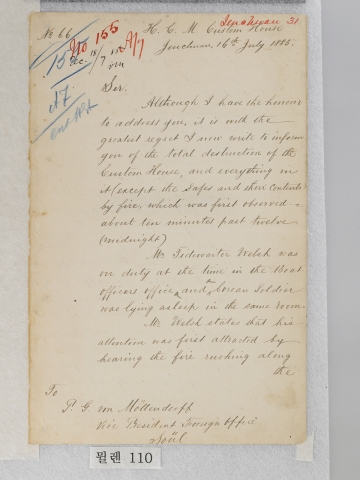 No 66
No 155
A/7
Jenchuan 31
H. C. M Custom House
Jenchuan, 16th July 1885.
Sir.
Although I have the honour
to address you, it is with the
greatest regret I now write to inform
you of the total destruction of the
Custom House, and everything in
it (except the Safes and their contents)
by fire, which was first observed
about ten minutes past twelve
(midnight)
Mr Tidewaiter Welsh was
on duty at the time in the Boat
Officers office, and a Corean Soldier
was lying asleep in the same room
Mr. Welsh states that his
attention was first attracted by
hearing the fire rushing along
the
To
P. G. von Möllendorff
Vice President Foreign Office
Söül
묄렌 110